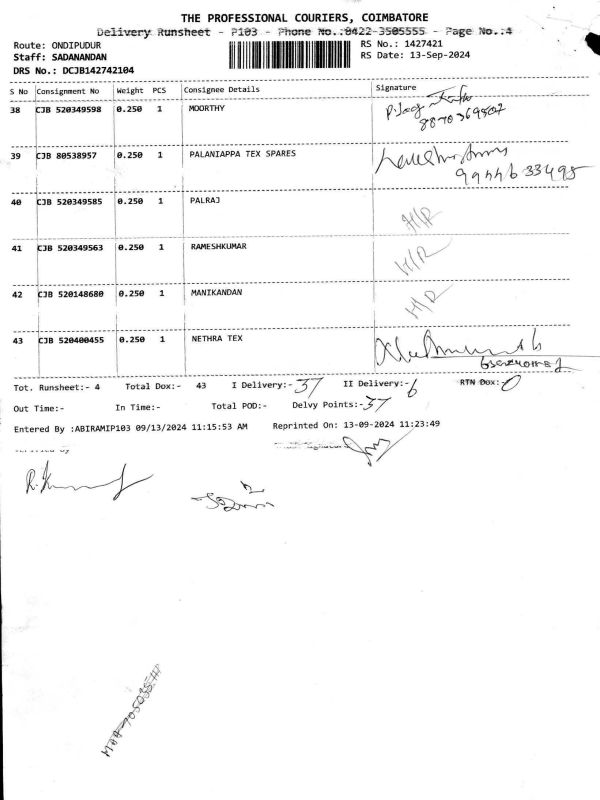 THE PROFESSIONAL COURIERS, COIMBATORE
Delivery Runsheet - P103 - Phone No.:0422-3505555 - Page No.:4
Route: ONDIPUDUR RS No.: 1427421
Staff: SADANANDAN RS Date: 13-Sep-2024
DRS No.: DCJB142742104
S No Consignment No Weight PCS Consignee Details Signature
38 CJB 520349598 0.250 1 MOORTHY
39 CJB 80538957 0.250 1 PALANIAPPA TEX SPARES
40 CJB 520349585 0.250 1 PALRAJ H/R
41 CJB 520349563 0.250 1 RAMESHKUMAR H/R
42 CJB 520148680 0.250 1 MANIKANDAN H/R
43 CJB 520400455 0.250 1 NETHRA TEX
Tot. Runsheet:- 4 Total Dox:- 43 I Delivery:- 37 II Delivery:- 6 RTN Dox:- 0
Out Time:- In Time:- Total POD:- Delvy Points:- 37
Entered By :ABIRAMIP103 09/13/2024 11:15:53 AM Reprinted On: 13-09-2024 11:23:49